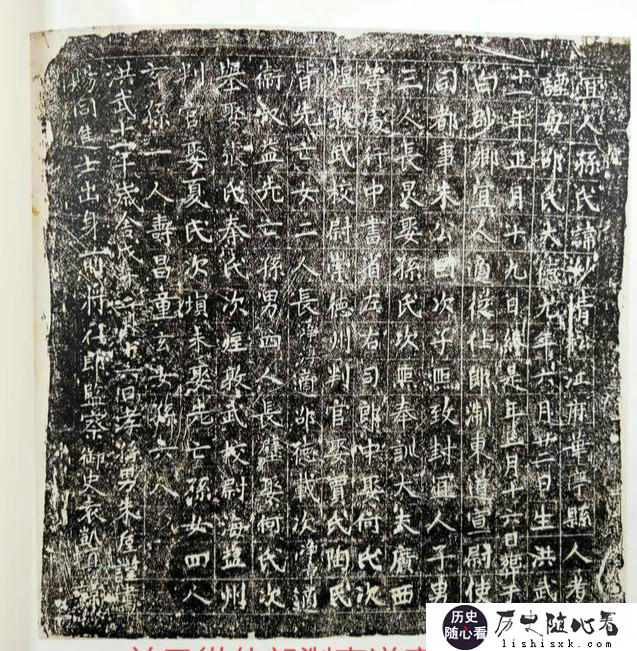 宜人孫氏諱妙清松江府華亭縣人考
母邵氏大德元年六月廿二日生洪武
十一年正月十九日終是年三月十六日葬于
白砂鄉宜人適從仕郎浙東道宣慰使
司都事朱公國次子致封宜人子男
三人長娶孫氏次熙奉訓大夫廣西
等處行中書省左右司郎中娶何氏次
敦武校尉崇德州判官娶賈氏陶氏
皆先亡女二人長適邵德載次淨適
衛叔益先亡孫男四人長娶何氏次
基娶張氏秦氏次垕敦武校尉海鹽州
判官娶夏氏次塤未娶先亡孫女四人
玄孫一人壽昌童玄女孫六人
洪武十一年歲舍戊午三月十六日孝孫男朱垕謹書
賜同進士出身前將仕郎監察御史袁凱填諱
历史随心看
历史随心看
lishisxk.com